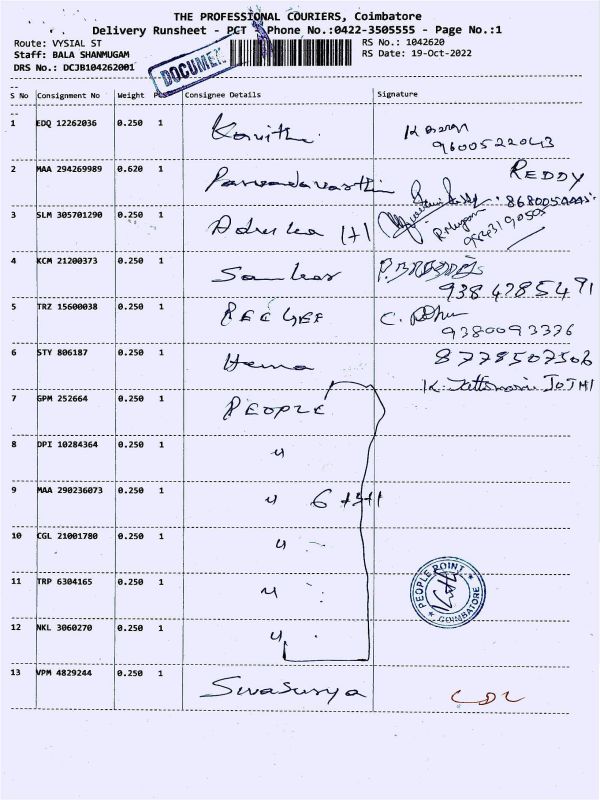 THE PROFESSIONAL COURIERS, Coimbatore
Delivery Runsheet - PCT - Phone No.:0422-3505555 - Page No.:1
Route: VYSIAL ST RS No.: 1042620
Staff: BALA SHANMUGAM RS Date: 19-Oct-2022
DRS No.: DCJB104262001
DOCUMEN
S No Consignment No Weight PCS Consignee Details Signature
1 EDQ 12262036 0.250 1 Kavitha
9600522043
2 MAA 294269989 0.620 1 REDDY
3 SLM 305701290 0.250 1 1+1
4 KCM 21200373 0.250 1 Sankar
9384785491
5 TRZ 15600038 0.250 1 REE GEE C.
9380093376
6 STY 806187 0.250 1 Hema 8778507506
K. JOTHI
7 GPM 252664 0.250 1 PEOPLE
8 DPI 10284364 0.250 1 "
9 MAA 290236073 0.250 1 "
10 CGL 21001780 0.250 1 "
11 TRP 6304165 0.250 1 "
PEOPLE POINT
COIMBATORE
12 NKL 3060270 0.250 1 "
13 VPM 4829244 0.250 1 Sivasurya